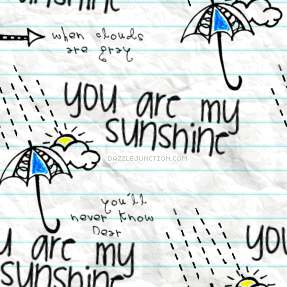 sunshine
when clouds
are gray
you are my
sunshine
DAZZLEJUNCTION.COM
you'll
never know
Dear
you
u are my
sunshine